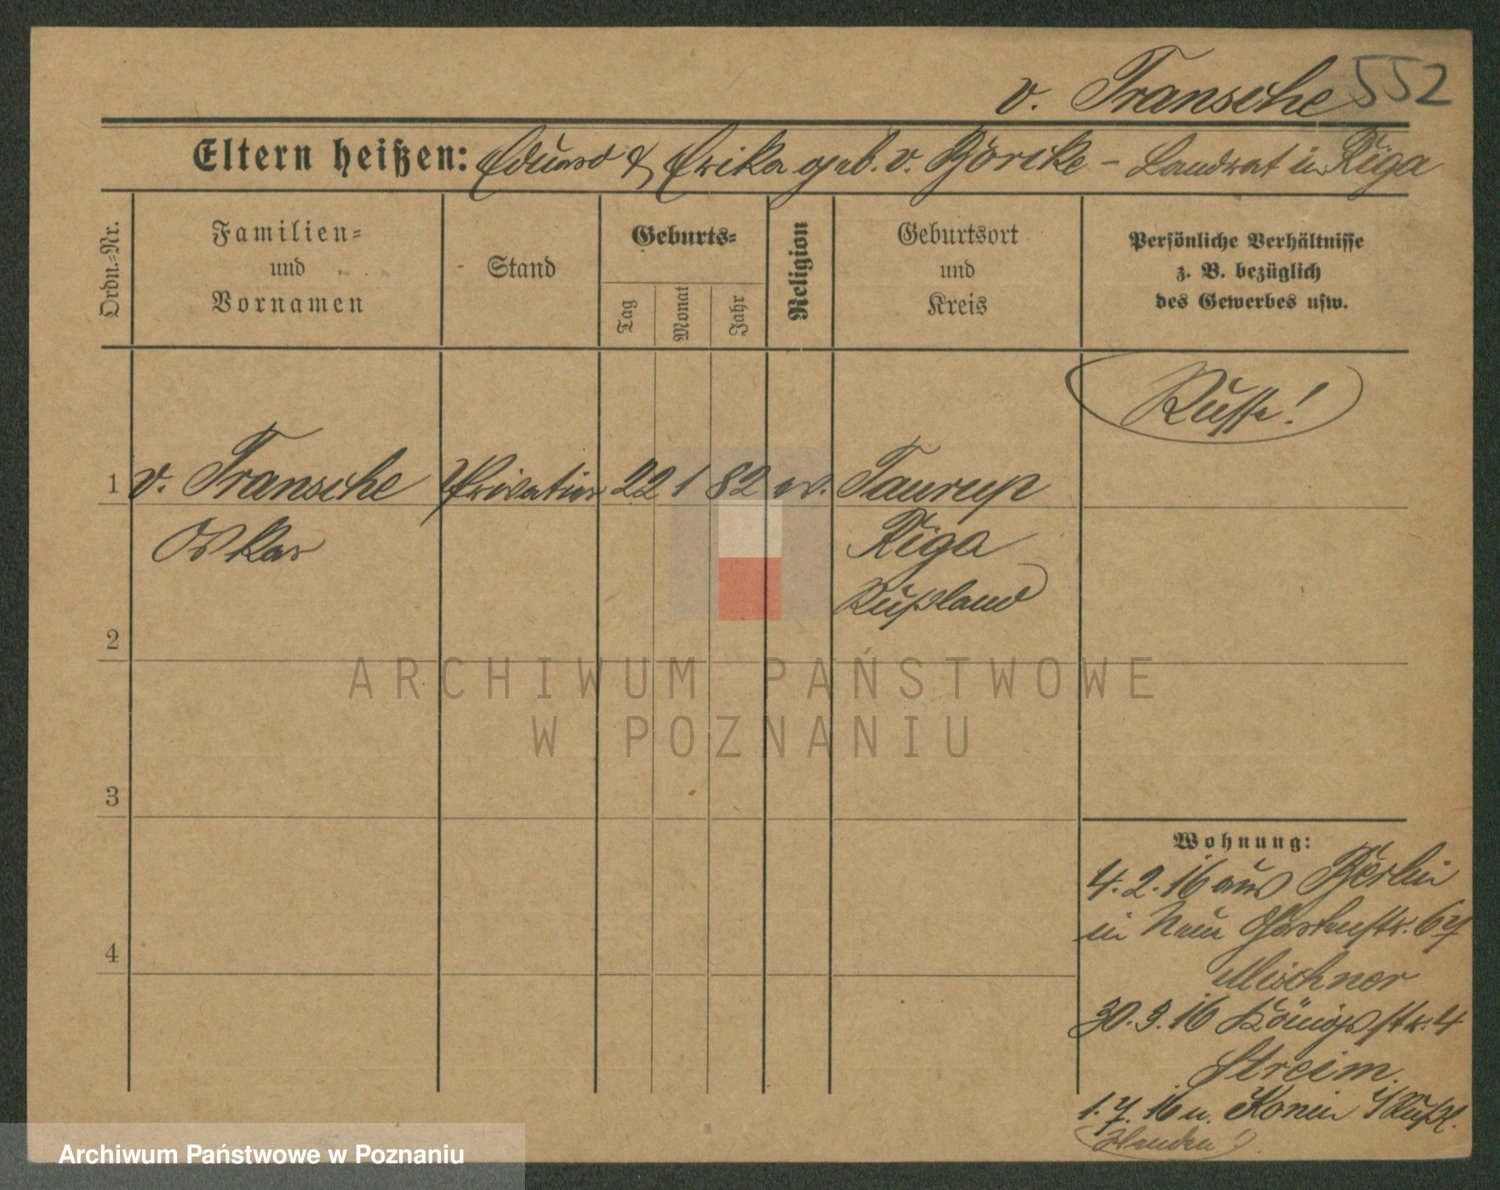 v. Transche 552
Eltern heißen: Eduard & Erika geb. v. Börcke – Landrat in Riga
Ordn.-Nr.
Familien-
und
Vornamen
Stand
Geburts-
Tag
Monat
Jahr
Religion
Geburtsort
und
Kreis
Persönliche Verhältnisse
z. B. bezüglich
des Gewerbes usw.
Russe!
1 v. Transche Privatier 22 1 82 ev. Taurup
Oskar Riga
Rußland
2
ARCHIWUM PAŃSTWOWE
W POZNANIU
3
Wohnung:
4. 2. 16 aus Berlin
in Neue Gartenstr. 67
30. 3. 16 Königstr. 4
Streim.
1. 7. 16 n. Konin i/Rußl.
4
Archiwum Państwowe w Poznaniu